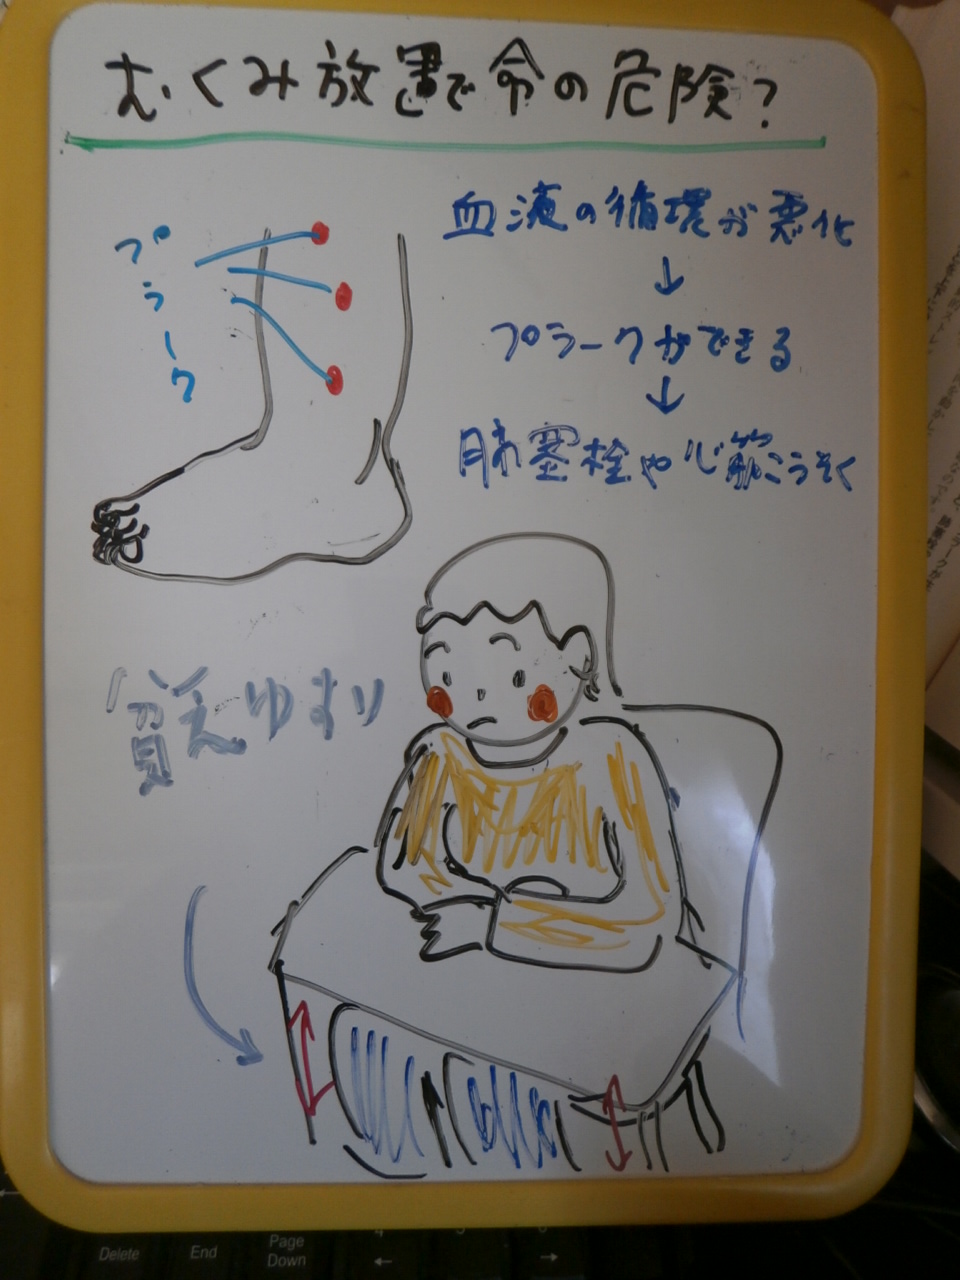 むくみ放置で命の危険?
血液の循環が悪化
↓
プラークができる
↓
肺塞栓や心筋こうそく
プラーク
貧乏ゆすり
Delete
End
Page
Down
←
→